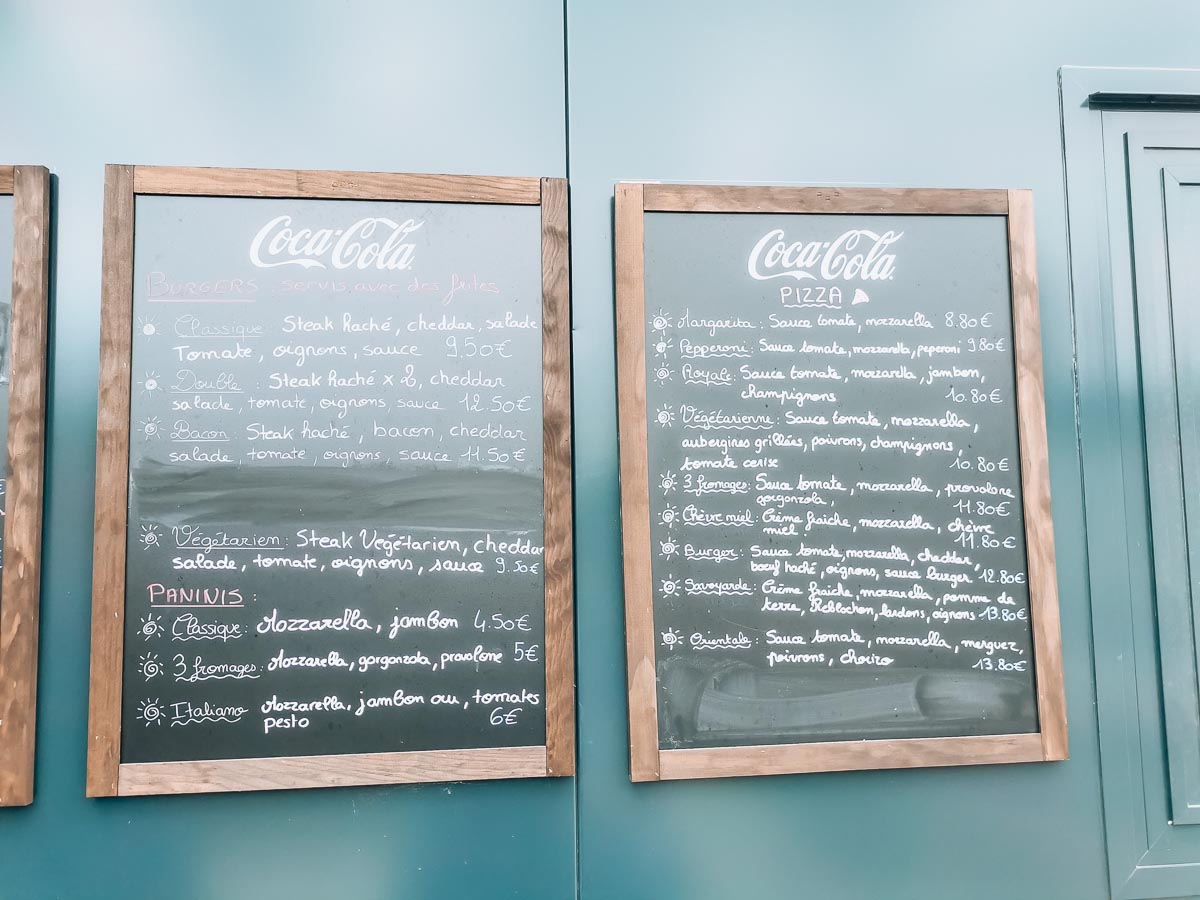 Coca-Cola
BURGERS : servis avec des frites
Classique : Steak haché, cheddar, salade
Tomate, oignons, sauce 9.50€
Double : Steak haché x 2, cheddar
salade, tomate, oignons, sauce 12.50€
Bacon : Steak haché, bacon, cheddar
salade, tomate, oignons, sauce 11.50€
Végétarien : Steak Végétarien, cheddar
salade, tomate, oignons, sauce 9.50€
PANINIS :
Classique : Mozzarella, jambon 4.50€
3 fromages : Mozzarella, gorgonzola, provolone 5€
Italiano Mozzarella, jambon cru, tomates
pesto 6€
Coca-Cola
PIZZA
Margarita : Sauce tomate, mozzarella 8.80€
Pepperoni : Sauce tomate, mozzarella, peperoni 9.80€
Royale : Sauce tomate, mozzarella, jambon,
champignons 10.80€
Végétarienne : Sauce tomate, mozzarella,
aubergines grillées, poivrons, champignons,
tomate cerise 10.80€
3 fromages : Sauce tomate, mozzarella, provolone
gorgonzola, 11.80€
Chèvre miel : Crème fraiche, mozzarella, chèvre
miel 11.80€
Burger : Sauce tomate, mozzarella, cheddar,
bœuf haché, oignons, sauce burger 12.80€
Savoyarde : Crème fraiche, mozzarella, pomme de
terre, Reblochon, lardons, oignons 13.80€
Orientale : Sauce tomate, mozzarella, merguez,
poivrons, chorizo 13.80€